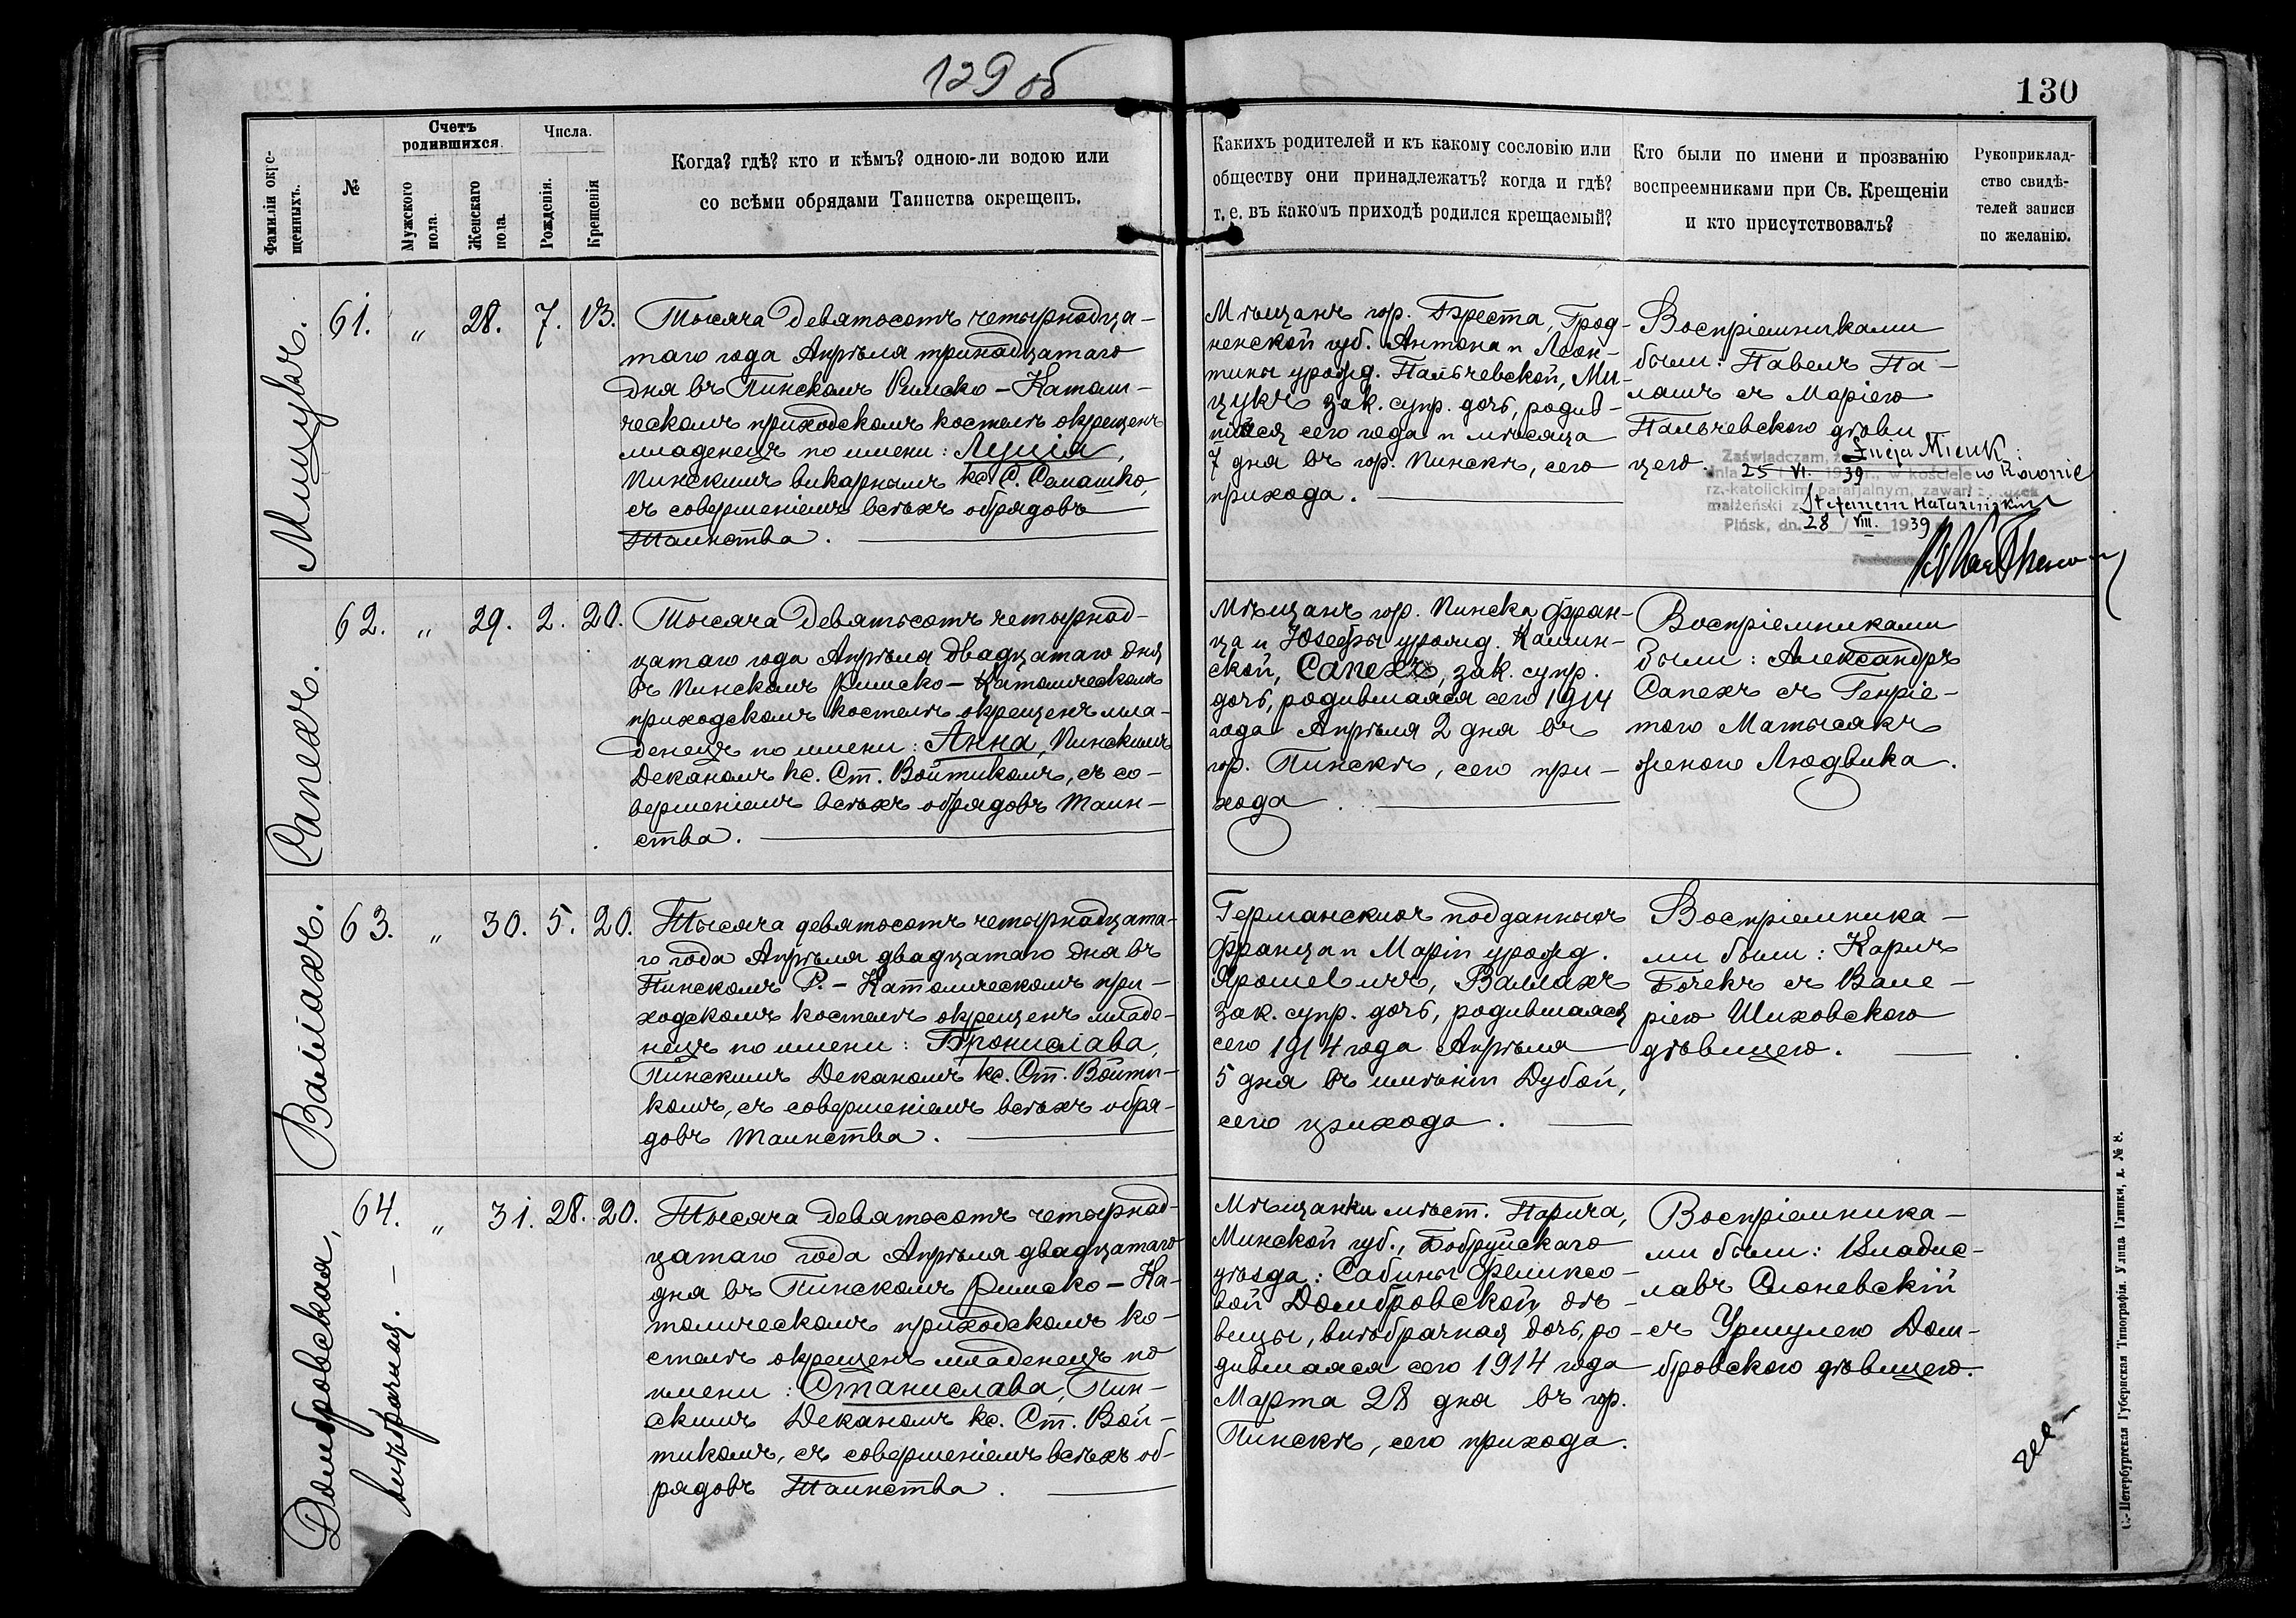 129 об
130
Фамиліи окре-
щенныхъ.
№
Счетъ
родившихся.
Мужского
пола.
Женскаго
пола.
Числа.
Рожденія.
Крещенія
Когда? гдѣ? кто и кѣмъ? одною-ли водою или
со всѣми обрядами Таинства окрещенъ.
Какихъ родителей и къ какому сословію или
обществу они принадлежатъ? когда и гдѣ?
т. е. въ какомъ приходѣ родился крещаемый?
Кто были по имени и прозванію
воспреемниками при Св. Крещеніи
и кто присутствовалъ?
Рукоприклад-
ство свидѣ-
телей записи
по желанію.
Мицукъ.
61. " 28. 7. 13.
Тысяча девятьсотъ четырнадца-
таго года Апрѣля тринадцатаго
дня въ Пинскомъ Римско-Катол-
ческомъ приходскомъ костелѣ окрещенъ
младенецъ по имени: Луція,
Пинскимъ викарнымъ кс. С. Семашко,
съ совершеніемъ всѣхъ обрядовъ
Таинства.
Мѣщанъ гор. Бреста, Грод-
ненской губ. Антона и Леон-
тины урожд. Пальчевской, Ми-
цукъ зак. супр. дочь, родив-
шаяся сего года и мѣсяца
7 дня въ гор. Пинскѣ, сего
прихода.
Воспріемниками
были: Павелъ Па-
лашъ съ Маріею
Пальчевскою дѣви-
цею.
Zaświadczam, ż Łucja Micuk
dnia 25 VI. 1939 r., w kościele w Rownie
rz.-katolickim parafjalnym, zawarł związek
małżeński z Stefanem
Pińsk, dn. 28 / VIII. 1939
Сапехъ.
62. " 29. 2. 20.
Тысяча девятьсотъ четырнад-
цатаго года Апрѣля двадцатаго дня
въ Пинскомъ Римско-Католическомъ
приходскомъ костелѣ окрещенъ мла-
денецъ по имени: Анна, Пинскимъ
Деканомъ кс. Ст. Войтикомъ, съ со-
вершеніемъ всѣхъ обрядовъ Таин-
ства.
Мѣщанъ гор. Пинска Фран-
ца и Юзефы урожд. Калин-
ской, Сапехъ, зак. супр.
дочь, родившаяся сего 1914
года Апрѣля 2 дня въ
гор. Пинскѣ, сего при-
хода.
Воспріемниками
были: Александръ
Сапехъ съ Генріе-
тою Матысякъ
женою Людвика.
Валлахъ.
63. " 30. 5. 20.
Тысяча девятьсотъ четырнадцата-
го года Апрѣля двадцатаго дня въ
Пинскомъ Р.-Католическомъ при-
ходскомъ костелѣ окрещенъ младе-
нецъ по имени: Бронислава,
Пинскимъ Деканомъ кс. Ст. Войти-
комъ, съ совершеніемъ всѣхъ обря-
довъ Таинства.
Германскихъ подданныхъ
Франца и Маріи урожд.
Ярошевичъ, Валлахъ
зак. супр. дочь, родившаяся
сего 1914 года Апрѣля
5 дня въ имѣніи Дубой,
сего прихода.
Воспріемника-
ми были: Карлъ
Бочекъ съ Вале-
ріею Шиховскою
дѣвицею.
Домбровская,
внѣбрачная.
64. " 31. 28. 20.
Тысяча девятьсотъ четырнад-
цатаго года Апрѣля двадцатаго
дня въ Пинскомъ Римско-Ка-
толическомъ приходскомъ ко-
стелѣ окрещенъ младенецъ по
имени: Станислава, Пин-
скимъ Деканомъ кс. Ст. Вой-
тикомъ, съ совершеніемъ всѣхъ об-
рядовъ Таинства.
Мѣщанки мѣст. Парича,
Минской губ., Бобруйскаго
уѣзда: Сабины Феликсо-
вой Домбровской дѣ-
вицы, внѣбрачная дочь, ро-
дившаяся сего 1914 года
Марта 28 дня въ гор.
Пинскѣ, сего прихода.
Воспріемника-
ми были: Владис-
лавъ Слоневскій
съ Уршулею Дом-
бровскою дѣвицею.
С.-Петербургская Губернская Типографія. Улица Глинки, д. № 8.